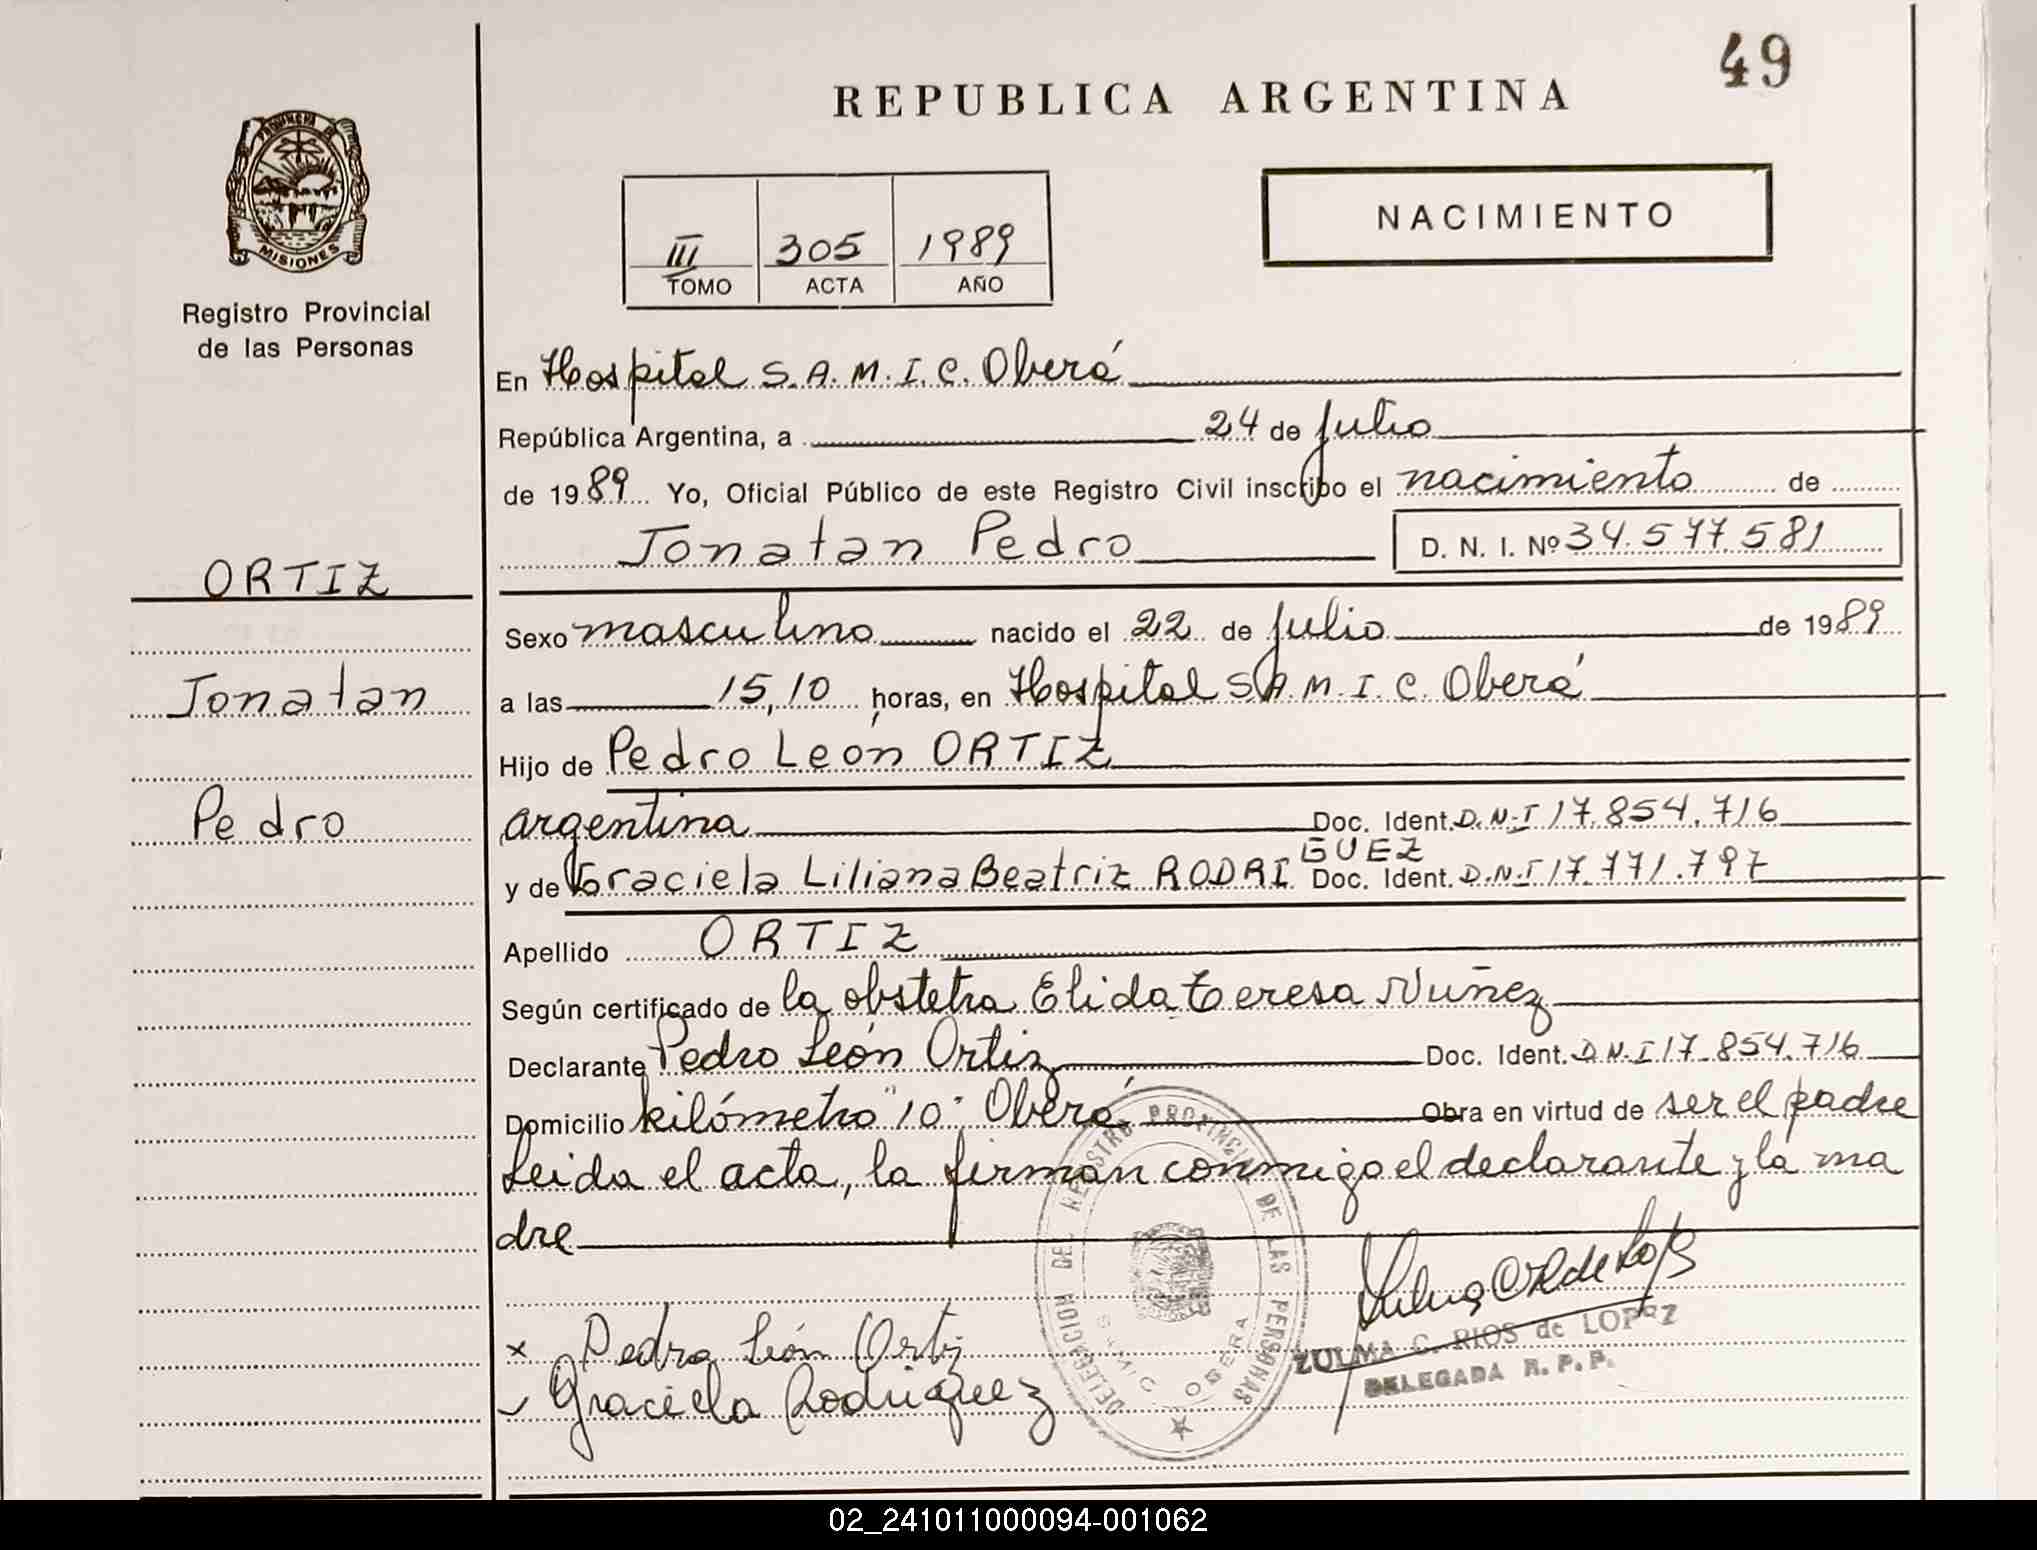 49
REPUBLICA ARGENTINA
PROVINCIA DE
MISIONES
Registro Provincial
de las Personas
NACIMIENTO
III 305 1989
TOMO ACTA AÑO
En Hospital S.A.M.I.C. Oberá
República Argentina, a 24 de Julio
de 1989 Yo, Oficial Público de este Registro Civil inscribo el nacimiento de
Jonatan Pedro D. N. I. Nº 34.577.581
ORTIZ
Jonatan
Pedro
Sexo masculino nacido el 22 de Julio de 1989
a las 15,10 horas, en Hospital S.A.M.I.C. Oberá
Hijo de Pedro León ORTIZ
argentina Doc. Ident. D.N.I 17.854.716
y de Graciela Liliana Beatriz RODRIGUEZ Doc. Ident. D.N.I 17.771.797
Apellido ORTIZ
Según certificado de la obstetra Elida teresa Nuñez
Declarante Pedro León Ortiz Doc. Ident. D.N.I 17.854.716
Domicilio kilómetro "10" Oberá Obra en virtud de ser el padre
Leida el acta, la firman conmigo el declarante y la ma
dre
DELEGACION DEL REGISTRO PROVINCIAL DE LAS PERSONAS
SAMIC OBERA
Pedro León Ortiz
Graciela Rodriguez
ZULMA C. RIOS de LOPEZ
DELEGADA R. P. P.
02_241011000094-001062